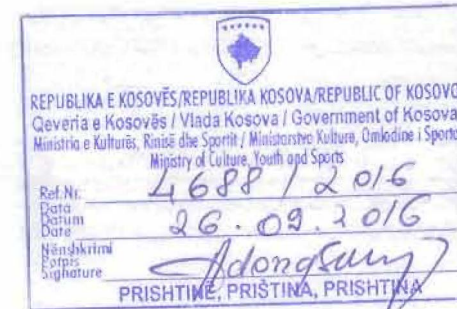 REPUBLIKA E KOSOVËS/REPUBLIKA KOSOVA/REPUBLIC OF KOSOVO
Qeveria e Kosovës / Vlada Kosova / Government of Kosova
Ministria e Kulturës, Rinisë dhe Sportit / Ministarstvo Kulture, Omladine i Sporta
Ministry of Culture, Youth and Sports
Ref.Nr. 4688 / 2016
Data
Datum
Date 26.09.2016
Nënshkrimi
Potpis
Signature
PRISHTINË, PRIŠTINA, PRISHTINA